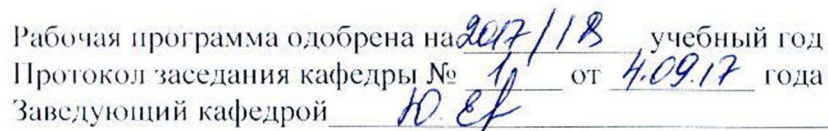 Рабочая программа одобрена на 2017/18 учебный год
Протокол заседания кафедры № 1 от 4.09.17 года
Заведующий кафедрой